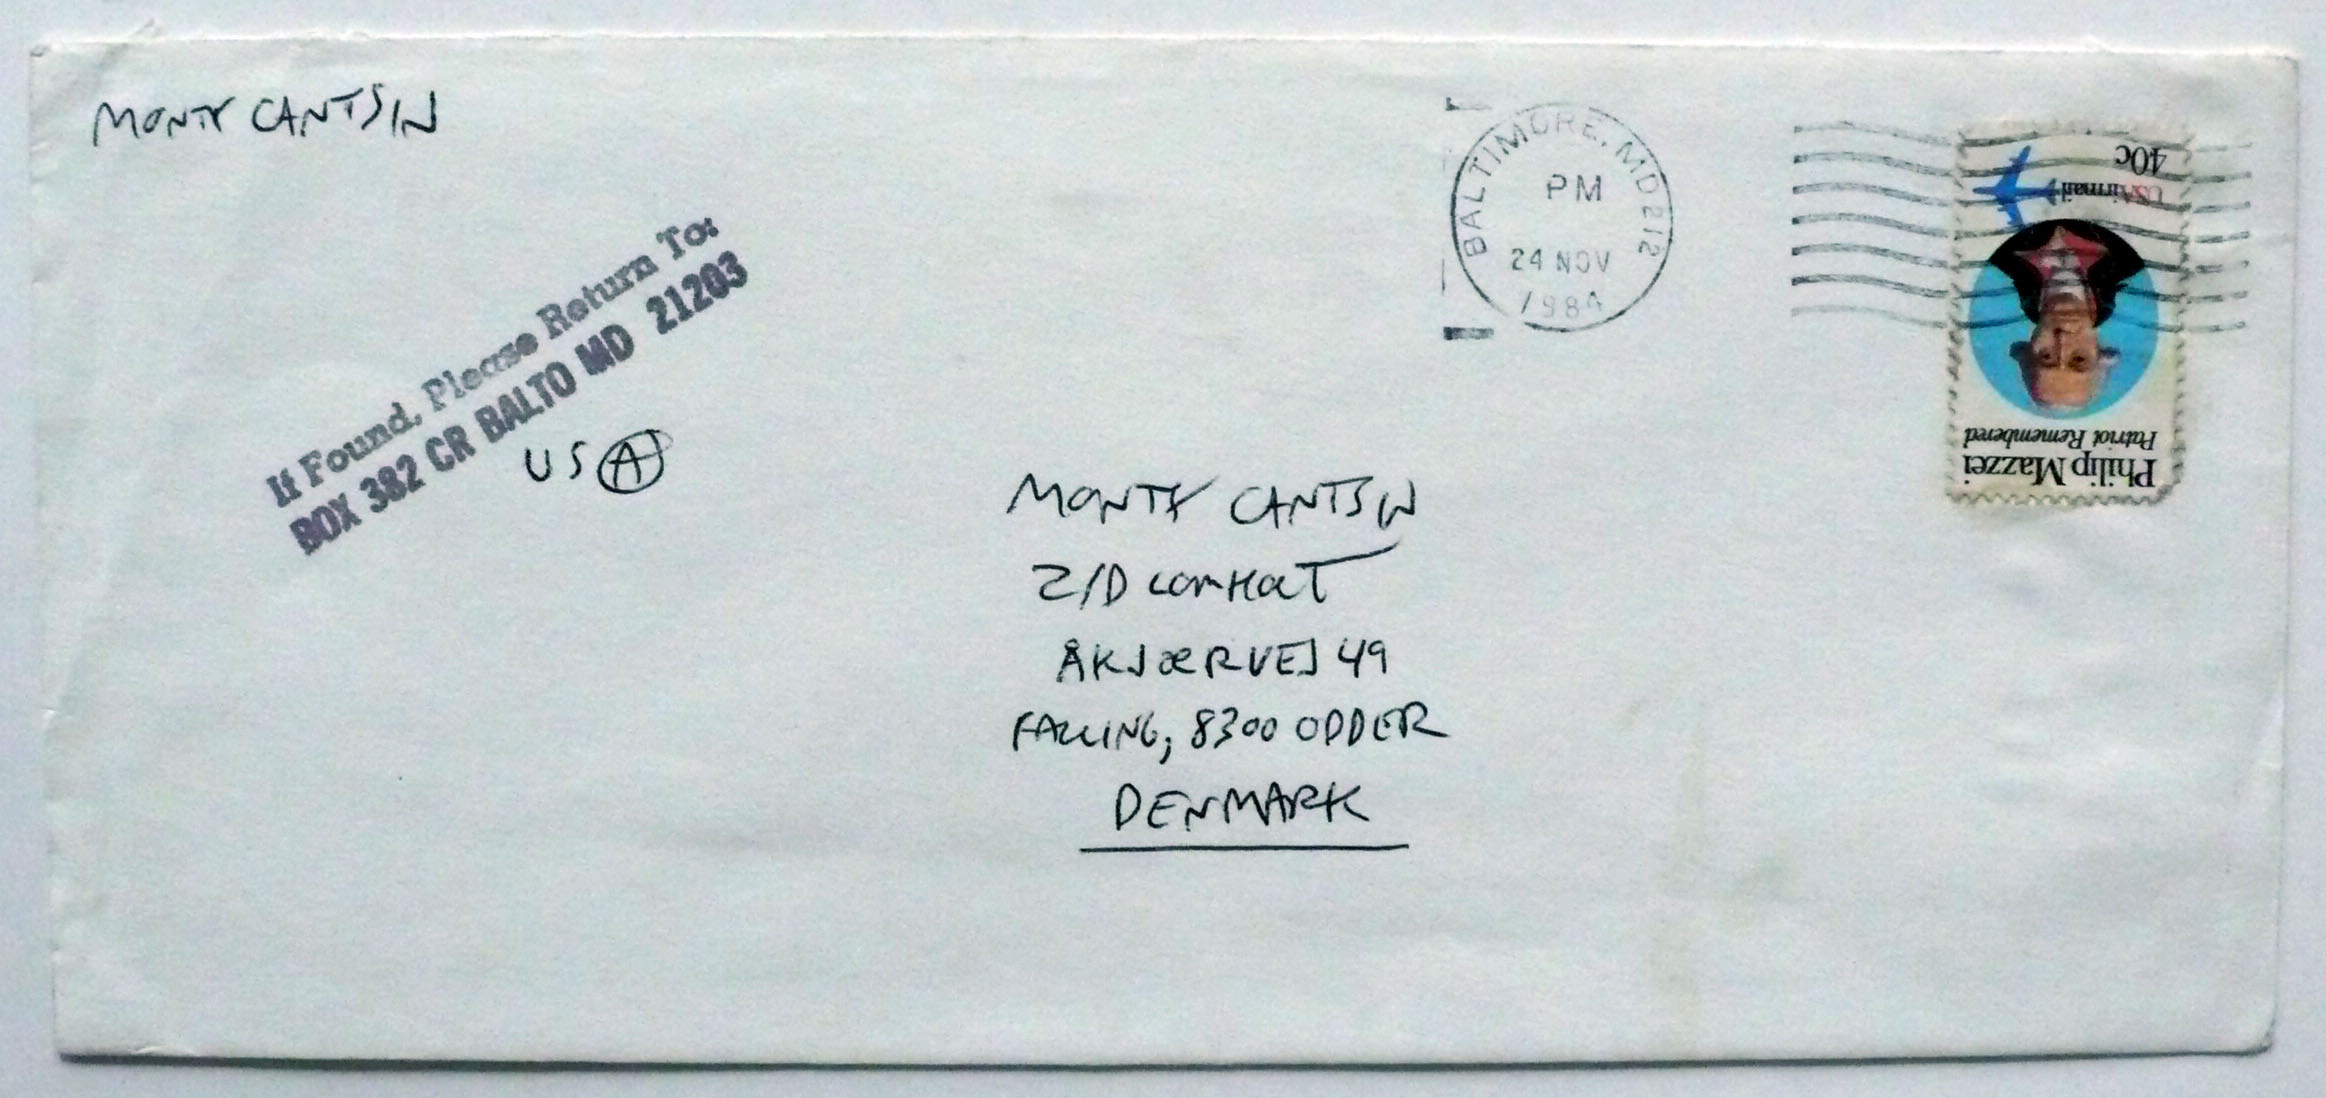 MONTY CANTSIN
If Found, Please Return To:
BOX 382 CR BALTO MD 21203
USA
BALTIMORE, MD 212
PM
24 NOV
1984
40c
USAirmail
Patriot Remembered
Philip Mazzei
MONTY CANTSIN
Z/D
ÅKJÆRVEJ 49
FALLING, 8300 ODDER
DENMARK